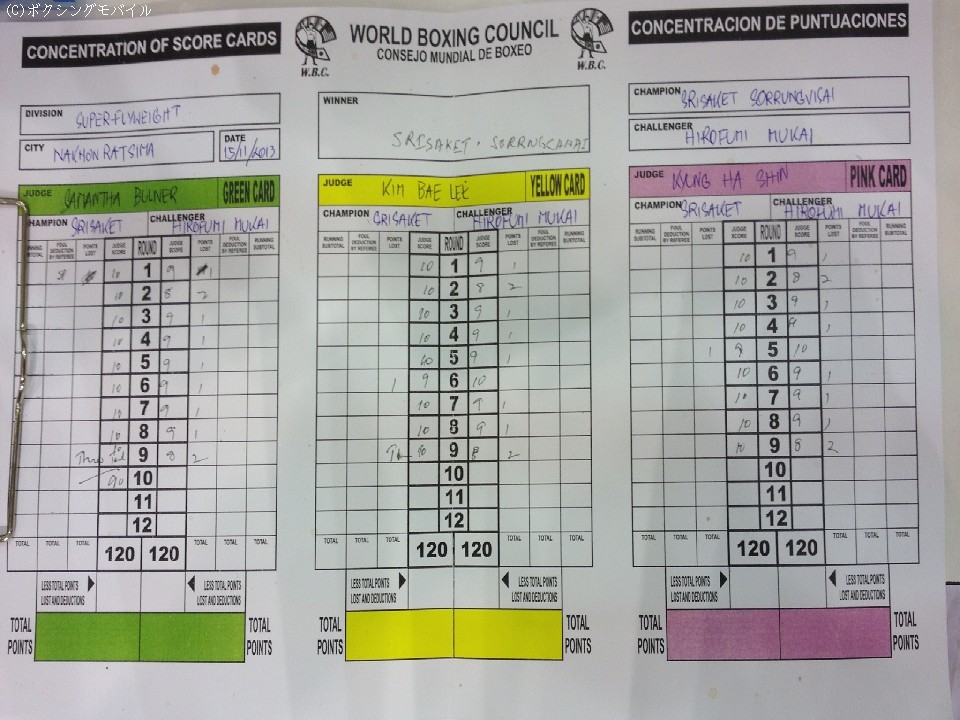 (C)ボクシングモバイル
CONCENTRATION OF SCORE CARDS
WORLD BOXING COUNCIL
CONSEJO MUNDIAL DE BOXEO
W.B.C.
W.B.C.
CONCENTRACION DE PUNTUACIONES
DIVISION SUPER-FLYWEIGHT
CITY NAKHON RATSIMA
DATE 15/11/2013
WINNER
SRISAKET
CHAMPION SRISAKET SORRUNGVISAI
CHALLENGER HIROFUMI MUKAI
JUDGE SAMANTHA BULNER GREEN CARD
CHAMPION SRISAKET CHALLENGER HIROFUMI MUKAI
RUNNING SUBTOTAL FOUL DEDUCTION BY REFEREE POINTS LOST JUDGE SCORE ROUND JUDGE SCORE POINTS LOST FOUL DEDUCTION BY REFEREE RUNNING SUBTOTAL
10 1 9 1
10 2 8 2
10 3 9 1
10 4 9 1
10 5 9 1
10 6 9 1
10 7 9 1
10 8 9 1
9 8 2
90 10
11
12
TOTAL TOTAL TOTAL 120 120 TOTAL TOTAL TOTAL
LESS TOTAL POINTS LOST AND DEDUCTIONS LESS TOTAL POINTS LOST AND DEDUCTIONS
TOTAL POINTS TOTAL POINTS
JUDGE KIM BAE LEE YELLOW CARD
CHAMPION SRISAKET CHALLENGER HIROFUMI MUKAI
RUNNING SUBTOTAL FOUL DEDUCTION BY REFEREE POINTS LOST JUDGE SCORE ROUND JUDGE SCORE POINTS LOST FOUL DEDUCTION BY REFEREE RUNNING SUBTOTAL
10 1 9 1
10 2 8 2
10 3 9 1
10 4 9 1
10 5 9 1
1 9 6 10
10 7 9 1
10 8 9 1
10 9 8 2
10
11
12
TOTAL TOTAL TOTAL 120 120 TOTAL TOTAL TOTAL
LESS TOTAL POINTS LOST AND DEDUCTIONS LESS TOTAL POINTS LOST AND DEDUCTIONS
TOTAL POINTS TOTAL POINTS
JUDGE KYUNG HA SHIN PINK CARD
CHAMPION SRISAKET CHALLENGER HIROFUMI MUKAI
RUNNING SUBTOTAL FOUL DEDUCTION BY REFEREE POINTS LOST JUDGE SCORE ROUND JUDGE SCORE POINTS LOST FOUL DEDUCTION BY REFEREE RUNNING SUBTOTAL
10 1 9 1
10 2 8 2
10 3 9 1
10 4 9 1
1 9 5 10
10 6 9 1
10 7 9 1
10 8 9 1
10 9 8 2
10
11
12
TOTAL TOTAL TOTAL 120 120 TOTAL TOTAL TOTAL
LESS TOTAL POINTS LOST AND DEDUCTIONS LESS TOTAL POINTS LOST AND DEDUCTIONS
TOTAL POINTS TOTAL POINTS